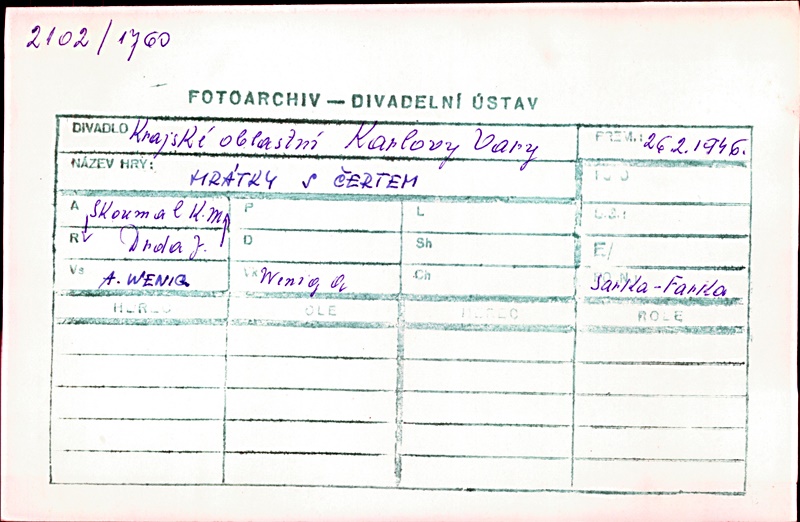 2102/1760
FOTOARCHIV — DIVADELNÍ ÚSTAV
DIVADLO Krajské oblastní Karlovy Vary PREM.: 26.2.1946.
NÁZEV HRY: HRÁTKY S ČERTEM
A Skoumal K.M. P L
R Drda J. D Sh E/
Vs A. WENIG Vk Wenig A Ch Sarka-Farka
HEREC ROLE HEREC ROLE